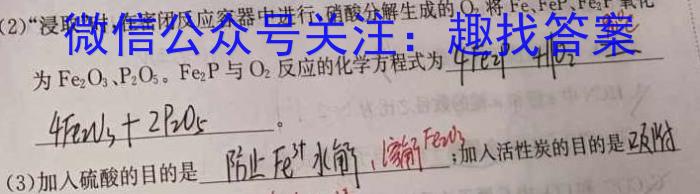 (2)“浸取”时,在密闭反应容器中进行,硝酸分解生成的O₂将Fe、FeP、Fe₂P氧化
微信公众号关注:趣找答案
为Fe₂O₃、P₂O₅。Fe₂P与O₂反应的化学方程式为 4Fe₂P
4Fe₂O₃+2P₂O₅。
(3)加入硫酸的目的是 防止Fe³⁺水解,溶解Fe₂O₃;加入活性炭的目的是 吸附